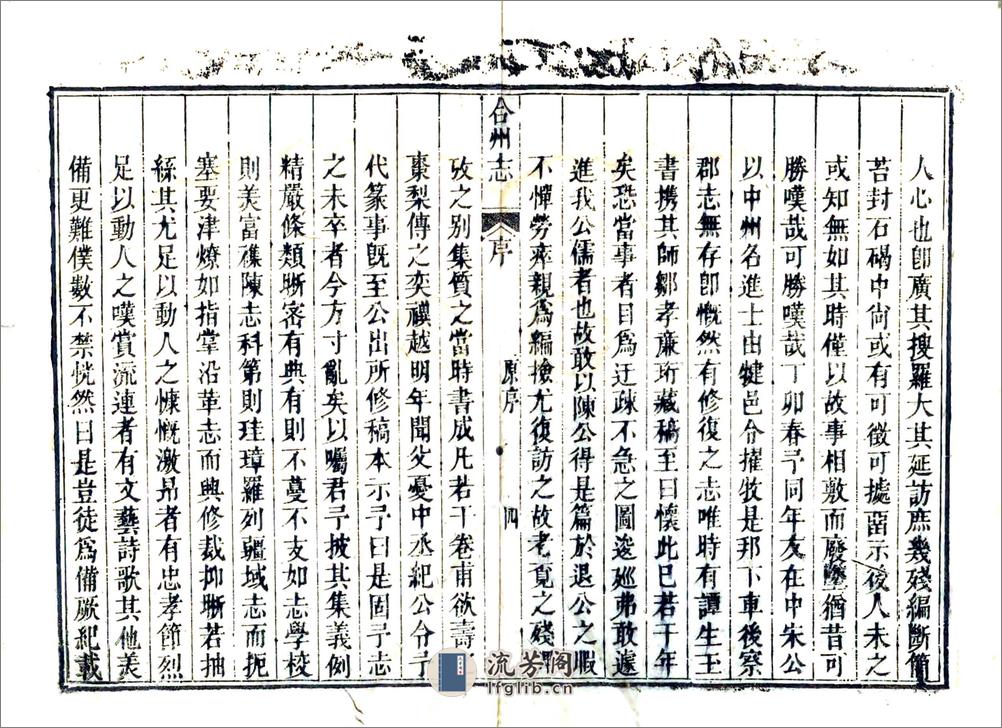 人心也卽廣其搜羅大其延訪庶幾殘編斷簡
苔封石碣中尙或有可徵可據畱示後人未之
或知無如其時僅以故事相敷而廢墜猶昔可
勝嘆哉可勝嘆哉丁卯春予同年友在中宋公
以中州名進士由犍邑令擢牧是邦下車後察
郡志無存卽慨然有修復之志唯時有譚生王
書携其師鄒孝廉珩藏稿至曰懷此已若干年
矣恐當事者目爲迂疎不急之圖逡廵弗敢遽
進我公儒者也故敢以陳公得是篇於退公之暇
不憚勞瘁親爲編撿尤復訪之故老覓之殘碑
攷之别集質之當時書成凡若干卷甫欲壽
棗梨傳之奕禩越明年聞父憂中丞紀公令予
代篆事旣至公出所修稿本示予曰是固予志
之未卒者今方寸亂矣以囑君予披其集義例
精嚴條類晰密有典有則不蔓不支如志學校
則美富襍陳志科第則珪璋羅列疆域志而扼
塞要津燎如指掌沿革志而興修裁抑晰若抽
絲其尤足以動人之慷慨激昻者有忠孝節烈
足以動人之嘆賞流連者有文藝詩歌其他美
備更難僕數不禁恍然曰是豈徒爲備厥紀載
合州志 序 原序 四
流芳阁
lfglib.cn